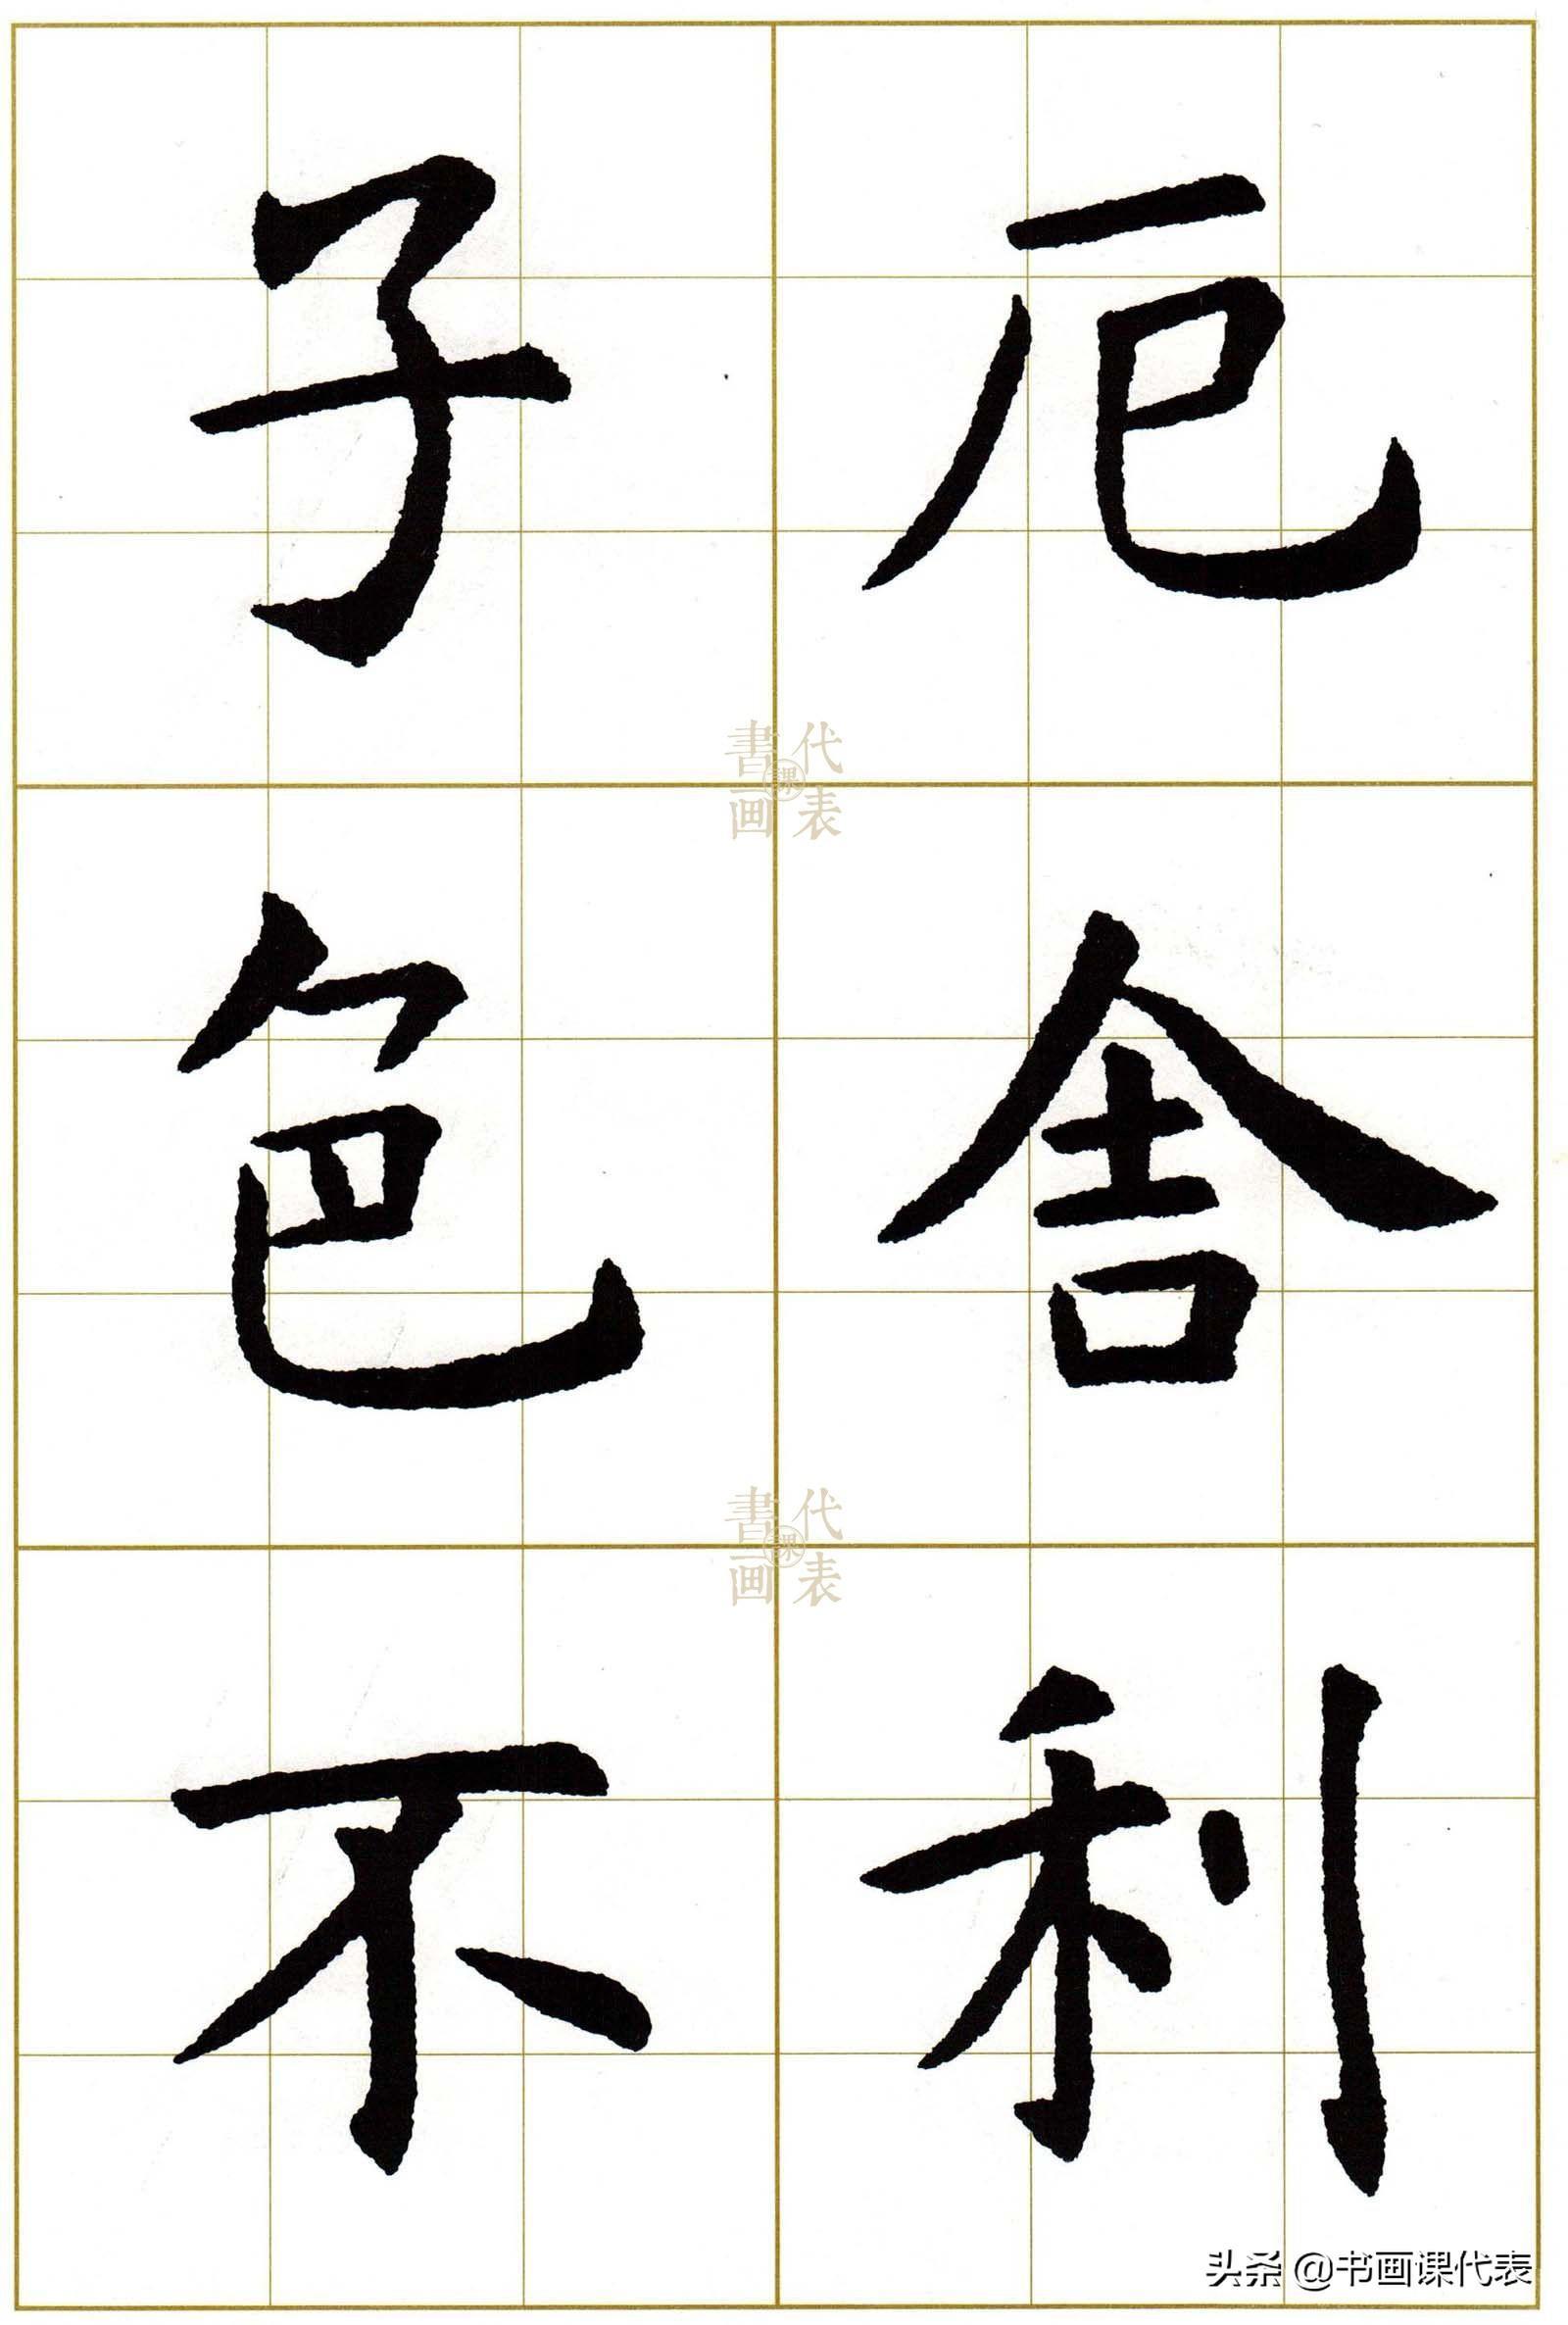 厄舍利
子色不
書画課代表
書画課代表
头条 @书画课代表